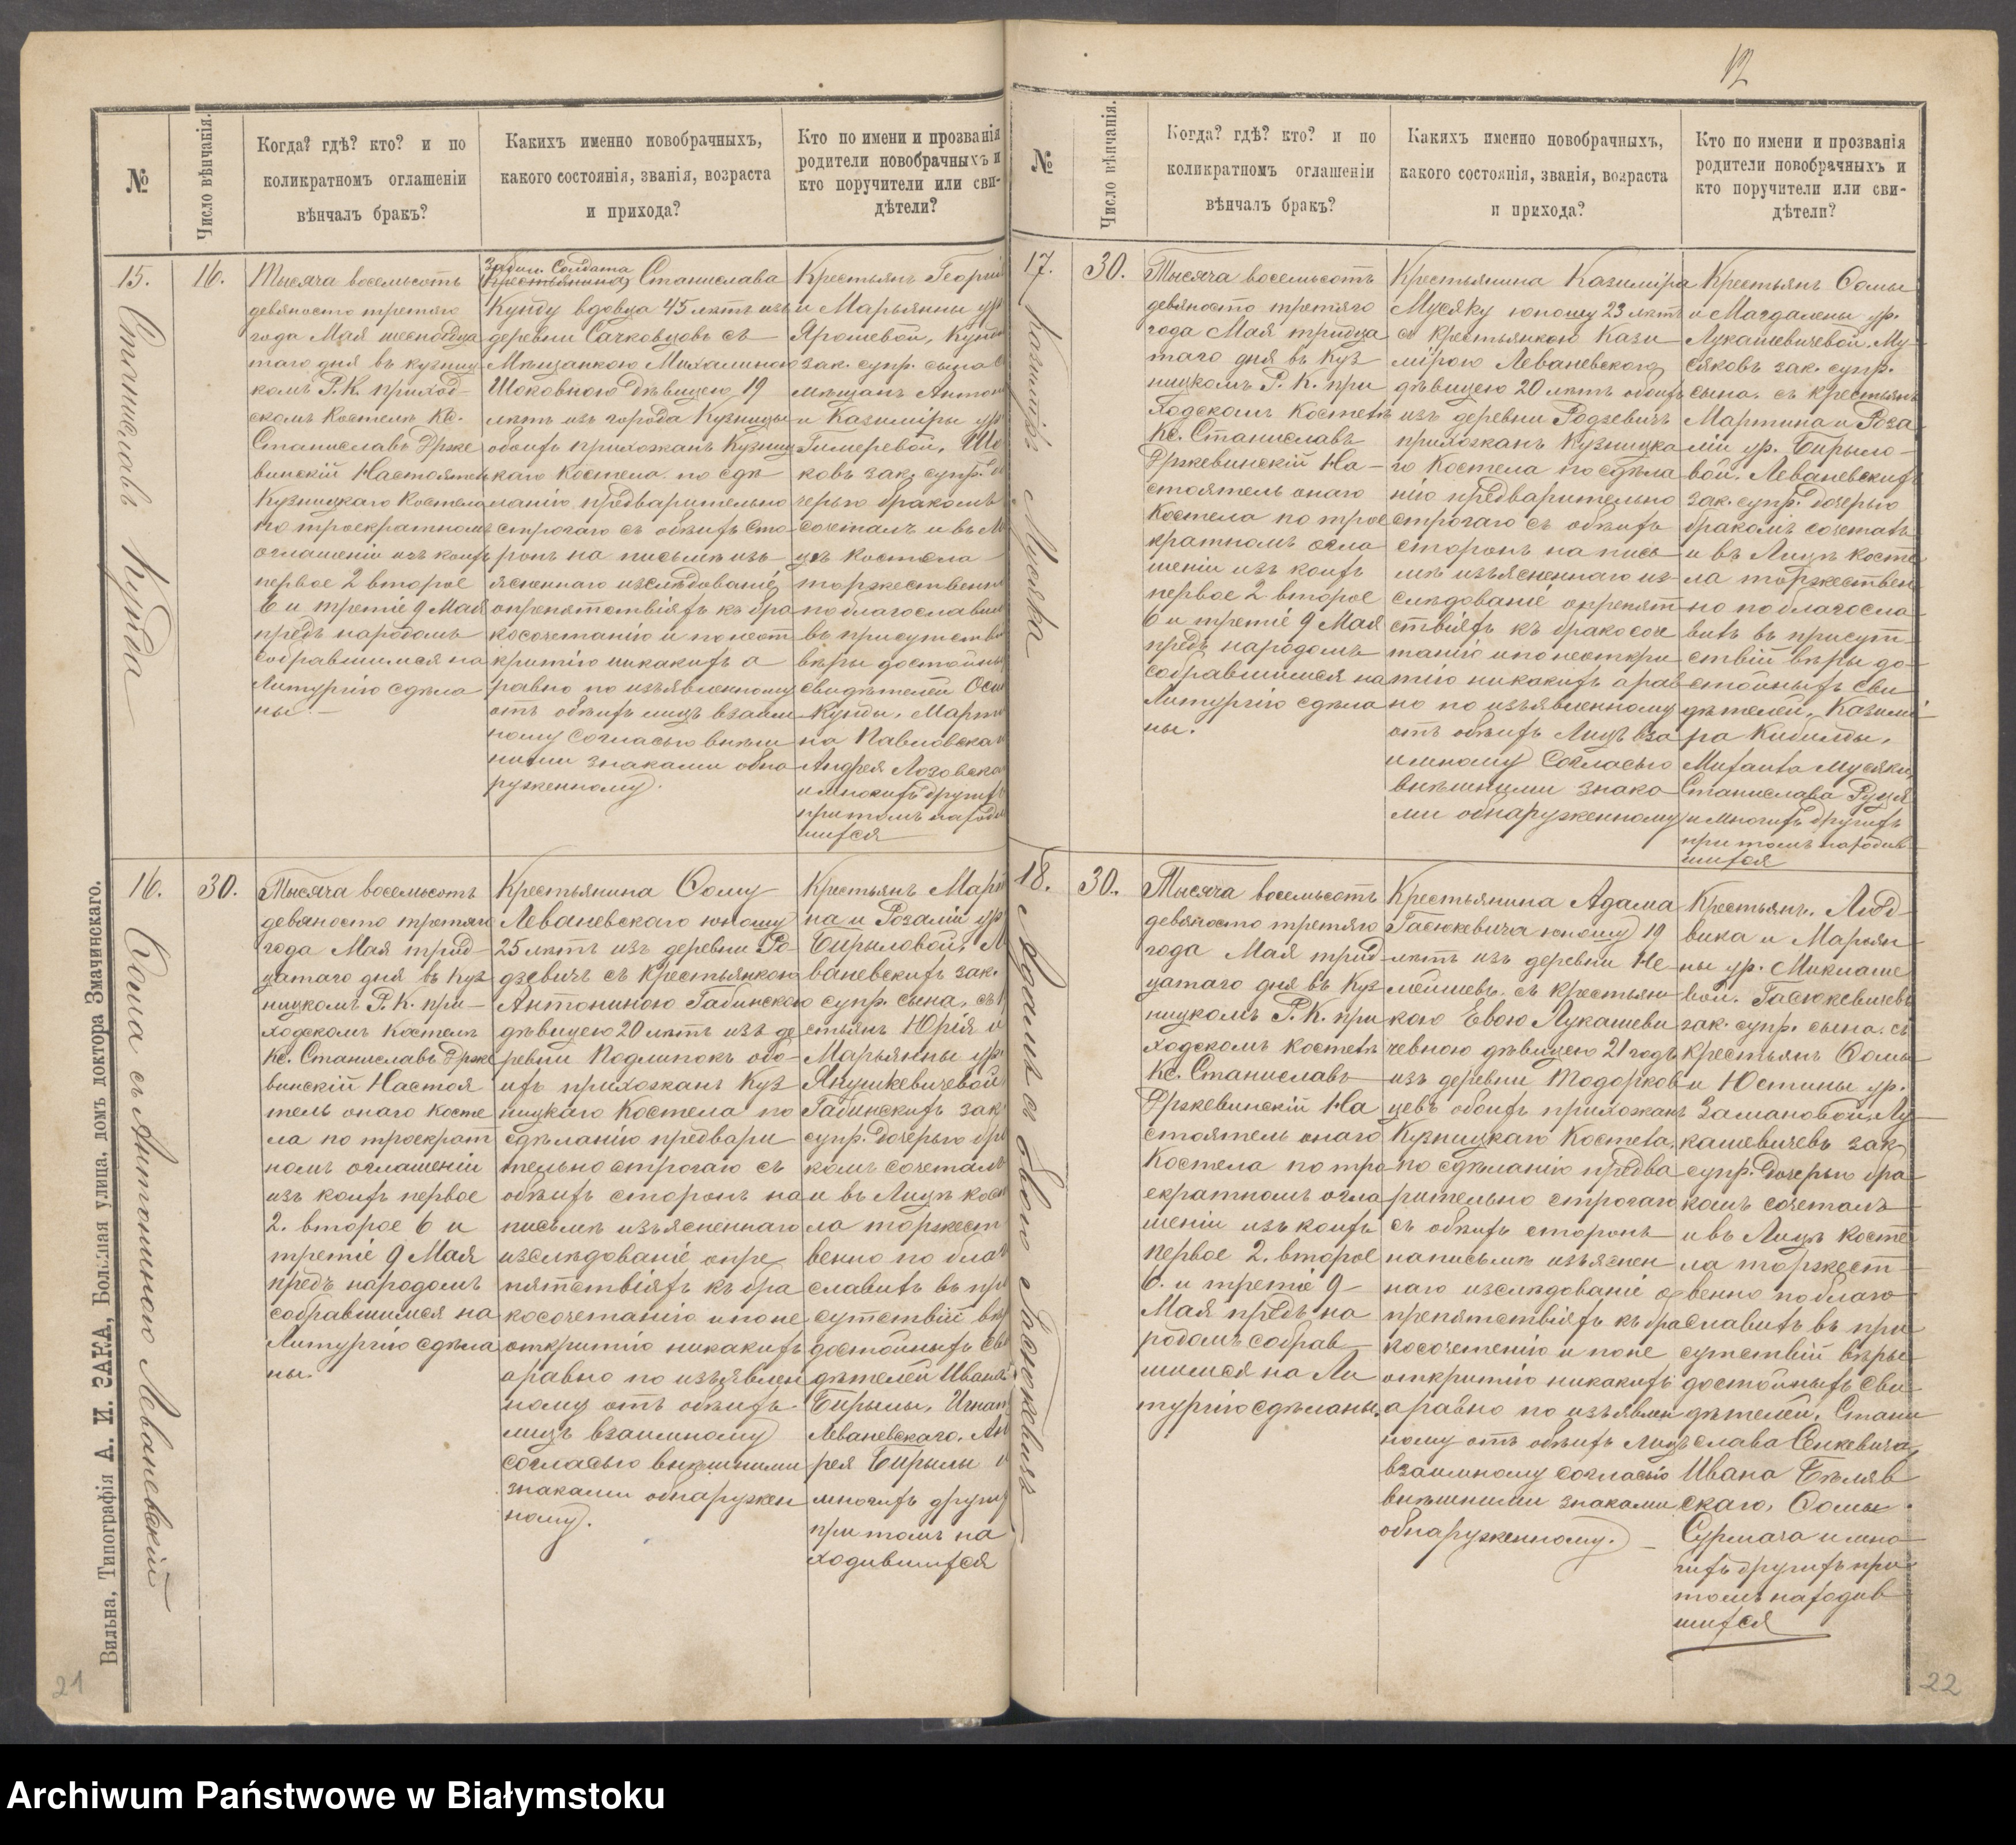 12
№
Число вѣнчанія.
Когда? гдѣ? кто? и по
коликратномъ оглашеніи
вѣнчалъ бракъ?
Какихъ именно новобрачныхъ,
какого состоянія, званія, возраста
и прихода?
Кто по имени и прозванія
родители новобрачныхъ и
кто поручители или сви-
дѣтели?
15.
Станиславъ Кунда
16.
Тысяча восемьсотъ
девяносто третяго
года Мая шеснадца
таго дня въ кузниц
комъ Р.К. приход-
скомъ Костелѣ Кс.
Станиславъ Эрже
винскій Настоятель
Кузницкаго Костела
по троекратномъ
оглашеніи изъ коихъ
первое 2 второе
6 и третіе 9 Мая
предъ народомъ
собравшимся на
Литургію сдѣла
ны.—
Станислава
Кунду вдовца 45 лѣтъ изъ
деревни Сачковцовъ съ
Мѣщанкою Михалиною
Шоковною дѣвицею 19
лѣтъ изъ города Кузницы
обоихъ прихожанъ Кузниц
каго Костела по сдѣ
ланію предварительно
строгаго съ обѣихъ сто-
ронъ на письмѣ изъ
ясненнаго изслѣдованіе
опрепятствіяхъ къ бра
косочетанію и понеот
критію никакихъ а
равно по изъявленному
отъ обѣихъ лицъ взаим
ному согласью внѣш
ними знаками обна
руженному.
Крестьянъ Георгі
и Марьянны ур
Ярошевой, Кунд
зак. супр. сына с
мѣщанъ Антон
и Казиміры ур
Гимеревой, Шо
ковъ зак. супр. до
черью бракомъ
сочеталъ и въ Ли
цѣ костела
торжественно
поблагославил
въ присутстви
вѣры достойны
свидѣтелей Оси
Кунды, Марти
на Павловска
Андрея Лозовска
и многихъ другихъ
притомъ находив
шихся
16.
Ѳома съ Антониною Леваневскій
30.
Тысяча восемьсотъ
девяносто третяго
года Мая трид-
цатаго дня въ Куз
ницкомъ Р.К. при-
ходскомъ костелѣ
Кс. Станиславъ Эрже
винскій Настоя
тель онаго Косте
ла по троекрат
номъ оглашеніи
изъ коихъ первое
2. второе 6 и
третіе 9 Мая
предъ народомъ
собравшимся на
Литургію сдѣла
ны.
Крестьянина Ѳому
Леваневскаго юношу
25 лѣтъ изъ деревни Ро-
дзевичъ съ Крестьянкою
Антониною Габинскою
дѣвицею 20 лѣтъ изъ де
ревни Подлипокъ обо-
ихъ прихожанъ Куз
ницкаго Костела по
сдѣланію предвари
тельно строгаго съ
обѣихъ сторонъ на
письмѣ изъясненнаго
изслѣдованіе опре
пятствіяхъ къ бра
косочетанію и поне
откритію никакихъ
аравно по изъявлен
ному отъ обѣихъ
лицъ взаимному
согласью внѣшними
знаками обнаружен
ному.
Крестьянъ Марти
на и Розаліи ур
Бирыловой, Ле
ваневскихъ зак.
супр. сына, съ к
стьянъ Юрія и
Марьянны ур.
Янушкевичевой
Габинскихъ зак
супр. дочерью бра
комъ сочеталъ
и въ Лицѣ косте
ла торжест
венно по благо
славить въ при
сутствіи вѣр
достойныхъ Сви
дѣтелей Ивана
Бирылы, Игнат
Леваневскаго, Ан
рея Бирылы и
многихъ других
притомъ на
ходившихся
№
Число вѣнчанія.
Когда? гдѣ? кто? и по
коликратномъ оглашеніи
вѣнчалъ бракъ?
Какихъ именно новобрачныхъ,
какого состоянія, званія, возраста
и прихода?
Кто по имени и прозванія
родители новобрачныхъ и
кто поручители или сви-
дѣтели?
17.
Казиміръ Мусяка
30.
Тысяча восемьсотъ
девяносто третяго
года Мая тридца
таго дня въ Куз
ницкомъ Р. К. при
ходскомъ Костелѣ
Кс. Станиславъ
Эржевинскій На-
стоятель онаго
Костела по трое
кратномъ огла
шеніи изъ коихъ
первое 2 второе
6 и третіе 9 Мая
предъ народомъ
собравшимся на
Литургію сдѣла
ны.
Крестьянина Казиміра
Мусяку юношу 23 лѣтъ
съ Крестьянкою Кази
мірою Леваневскою
дѣвицею 20 лѣтъ обоихъ
изъ деревни Родзевичъ
прихожанъ Кузницка
го Костела по сдѣла
нію предварительно
строгаго съ обѣихъ
сторонъ на пись
мѣ изъясненнаго из-
слѣдованіе опрепят
ствіяхъ къ бракосоче
танію и понеоткри
тію никакихъ арав
но по изъявленному
отъ обѣихъ Лицъ вза
имному согласью
внѣшними знака
ми обнаруженному
Крестьянъ Ѳомы
и Магдалены ур.
Лукашевичевой, Му-
сяковъ зак. супр.
сына, съ крестьянъ
Мартина и Роза
ліи ур. Бирыло-
вой, Леваневскихъ
зак. супр. дочерью
бракомъ сочеталъ
и въ Лицѣ косте
ла торжествен
но по благосла
вить въ присут
ствіи вѣры до-
стойныхъ Сви
дѣтелей, Казимі
ра Кибилды,
Михаила Мусяки,
Станислава Руця
и многихъ другихъ
притомъ находив-
шихся
18.
Адамъ съ Евою Гасюкевичъ
30.
Тысяча восемьсотъ
девяносто третяго
года Мая трид
цатаго дня въ Куз
ницкомъ Р.К. при
ходскомъ костелѣ
Кс. Станиславъ
Эржевинскій На
стоятель онаго
Костела по тро
екратномъ огла
шеніи изъ коихъ
первое 2. второе
6. и третіе 9
Мая предъ на
родомъ собрав
шимся на Ли
тургію сдѣланы.
Крестьянина Адама
Гасюкевича юношу 19
лѣтъ изъ деревни Не-
мейшевъ съ крестьян
кою Евою Лукашеви
чевною дѣвицею 21 годъ
изъ деревни Тодорков
цевъ обоихъ прихожанъ
Кузницкаго Костела,
по сдѣланію предва
рительно строгаго
съ обѣихъ сторонъ
написьмѣ изъяснен
наго изслѣдованіе о
препятствіяхъ къ бра
косочетенію и поне
откритію никакихъ
аравно по изъявлен
ному отъ обѣихъ лицъ
взаимному согласью
внѣшними знаками
обнаруженному.
Крестьянъ. Люд-
вика и Марьян-
ны ур. Миклаше
вой. Гасюкевичевъ
зак. супр. сына. съ
крестьянъ Ѳомы
и Юстины ур.
Замановой, Лу-
кашевичевъ зак
супр. дочерью бра
комъ сочеталъ
и въ Лицѣ косте
ла торжест
венно поблаго
славить въ при
сутствіи вѣры
достойныхъ Сви
дѣтелей, Стани
слава Сенкевича,
Ивана Бѣляв
скаго, Ѳомы
Сурмача и мно
гихъ другихъ при
томъ находив
шихся
Вильна, Типографія А. И. ЗАКА, Большая улица, домъ доктора Змачинскаго.
21
22
Archiwum Państwowe w Białymstoku